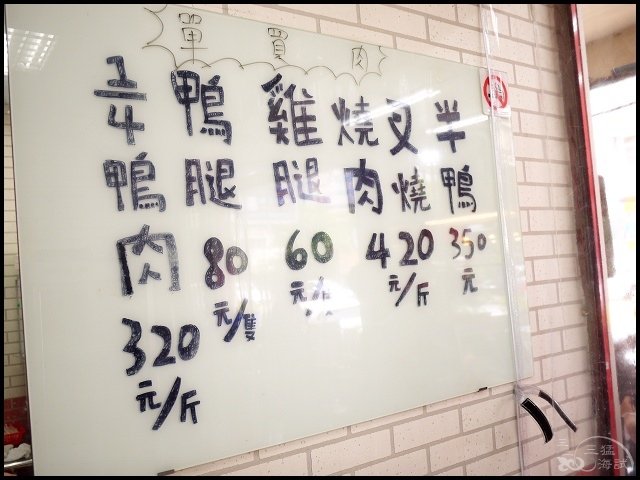 單買肉
1/4
鴨
肉
320
元/斤
鴨
腿
80
元/隻
雞
腿
60
元/
燒 叉
肉 燒
420
元/斤
半
鴨
350
元
三猛
海試